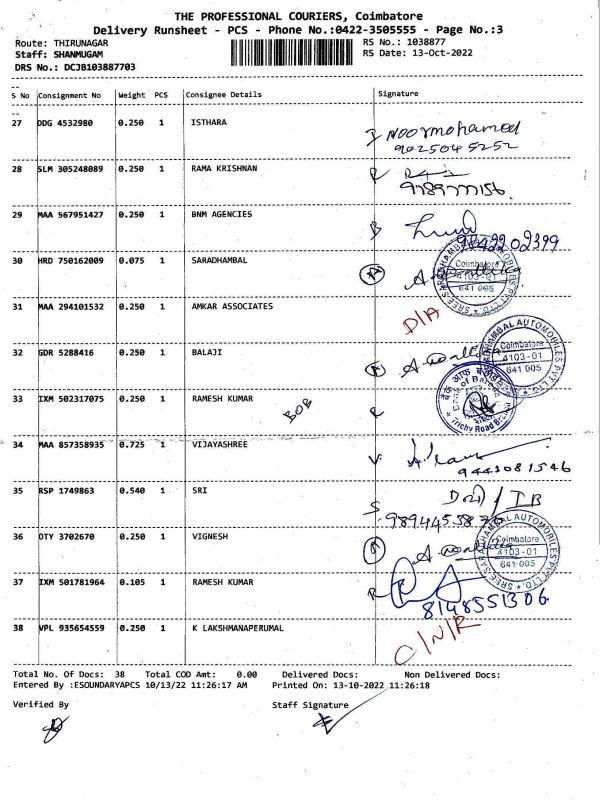 THE PROFESSIONAL COURIERS, Coimbatore
Delivery Runsheet - PCS - Phone No.:0422-3505555 - Page No.:3
Route: THIRUNAGAR
RS No.: 1038877
Staff: SHANMUGAM
RS Date: 13-Oct-2022
DRS No.: DCJB103887703
S No Consignment No Weight PCS Consignee Details Signature
27 DDG 4532980 0.250 1 ISTHARA
I Noormohamed
9025045252
28 SLM 305248089 0.250 1 RAMA KRISHNAN R
9789777156
29 MAA 567951427 0.250 1 BNM AGENCIES B
9842202399
30 HRD 750162009 0.075 1 SARADHAMBAL
Coimbatore
4103-01
641 005
31 MAA 294101532 0.250 1 AMKAR ASSOCIATES D/A
32 GDR 5288416 0.250 1 BALAJI
SREE SARADHAMBAL AUTOMOBILES PVT LTD
Coimbatore
4103-01
641 005
33 IXM 502317075 0.250 1 RAMESH KUMAR BOB R
बैंक आफ
Bank of Baroda
Trichy Road Branch
34 MAA 857358935 0.725 1 VIJAYASHREE V
9443081546
35 RSP 1749863 0.540 1 SRI S
/ IB
36 OTY 3702670 0.250 1 VIGNESH
SREE SARADHAMBAL AUTOMOBILES PVT LTD
Coimbatore
4103-01
641 005
37 IXM 501781964 0.105 1 RAMESH KUMAR R
8148551306
38 VPL 935654559 0.250 1 K LAKSHMANAPERUMAL C/N/R
Total No. Of Docs: 38 Total COD Amt: 0.00 Delivered Docs: Non Delivered Docs:
Entered By :ESOUNDARYAPCS 10/13/22 11:26:17 AM Printed On: 13-10-2022 11:26:18
Verified By Staff Signature